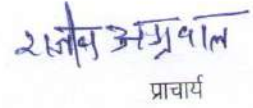 राजीव अग्रवाल
प्राचार्य